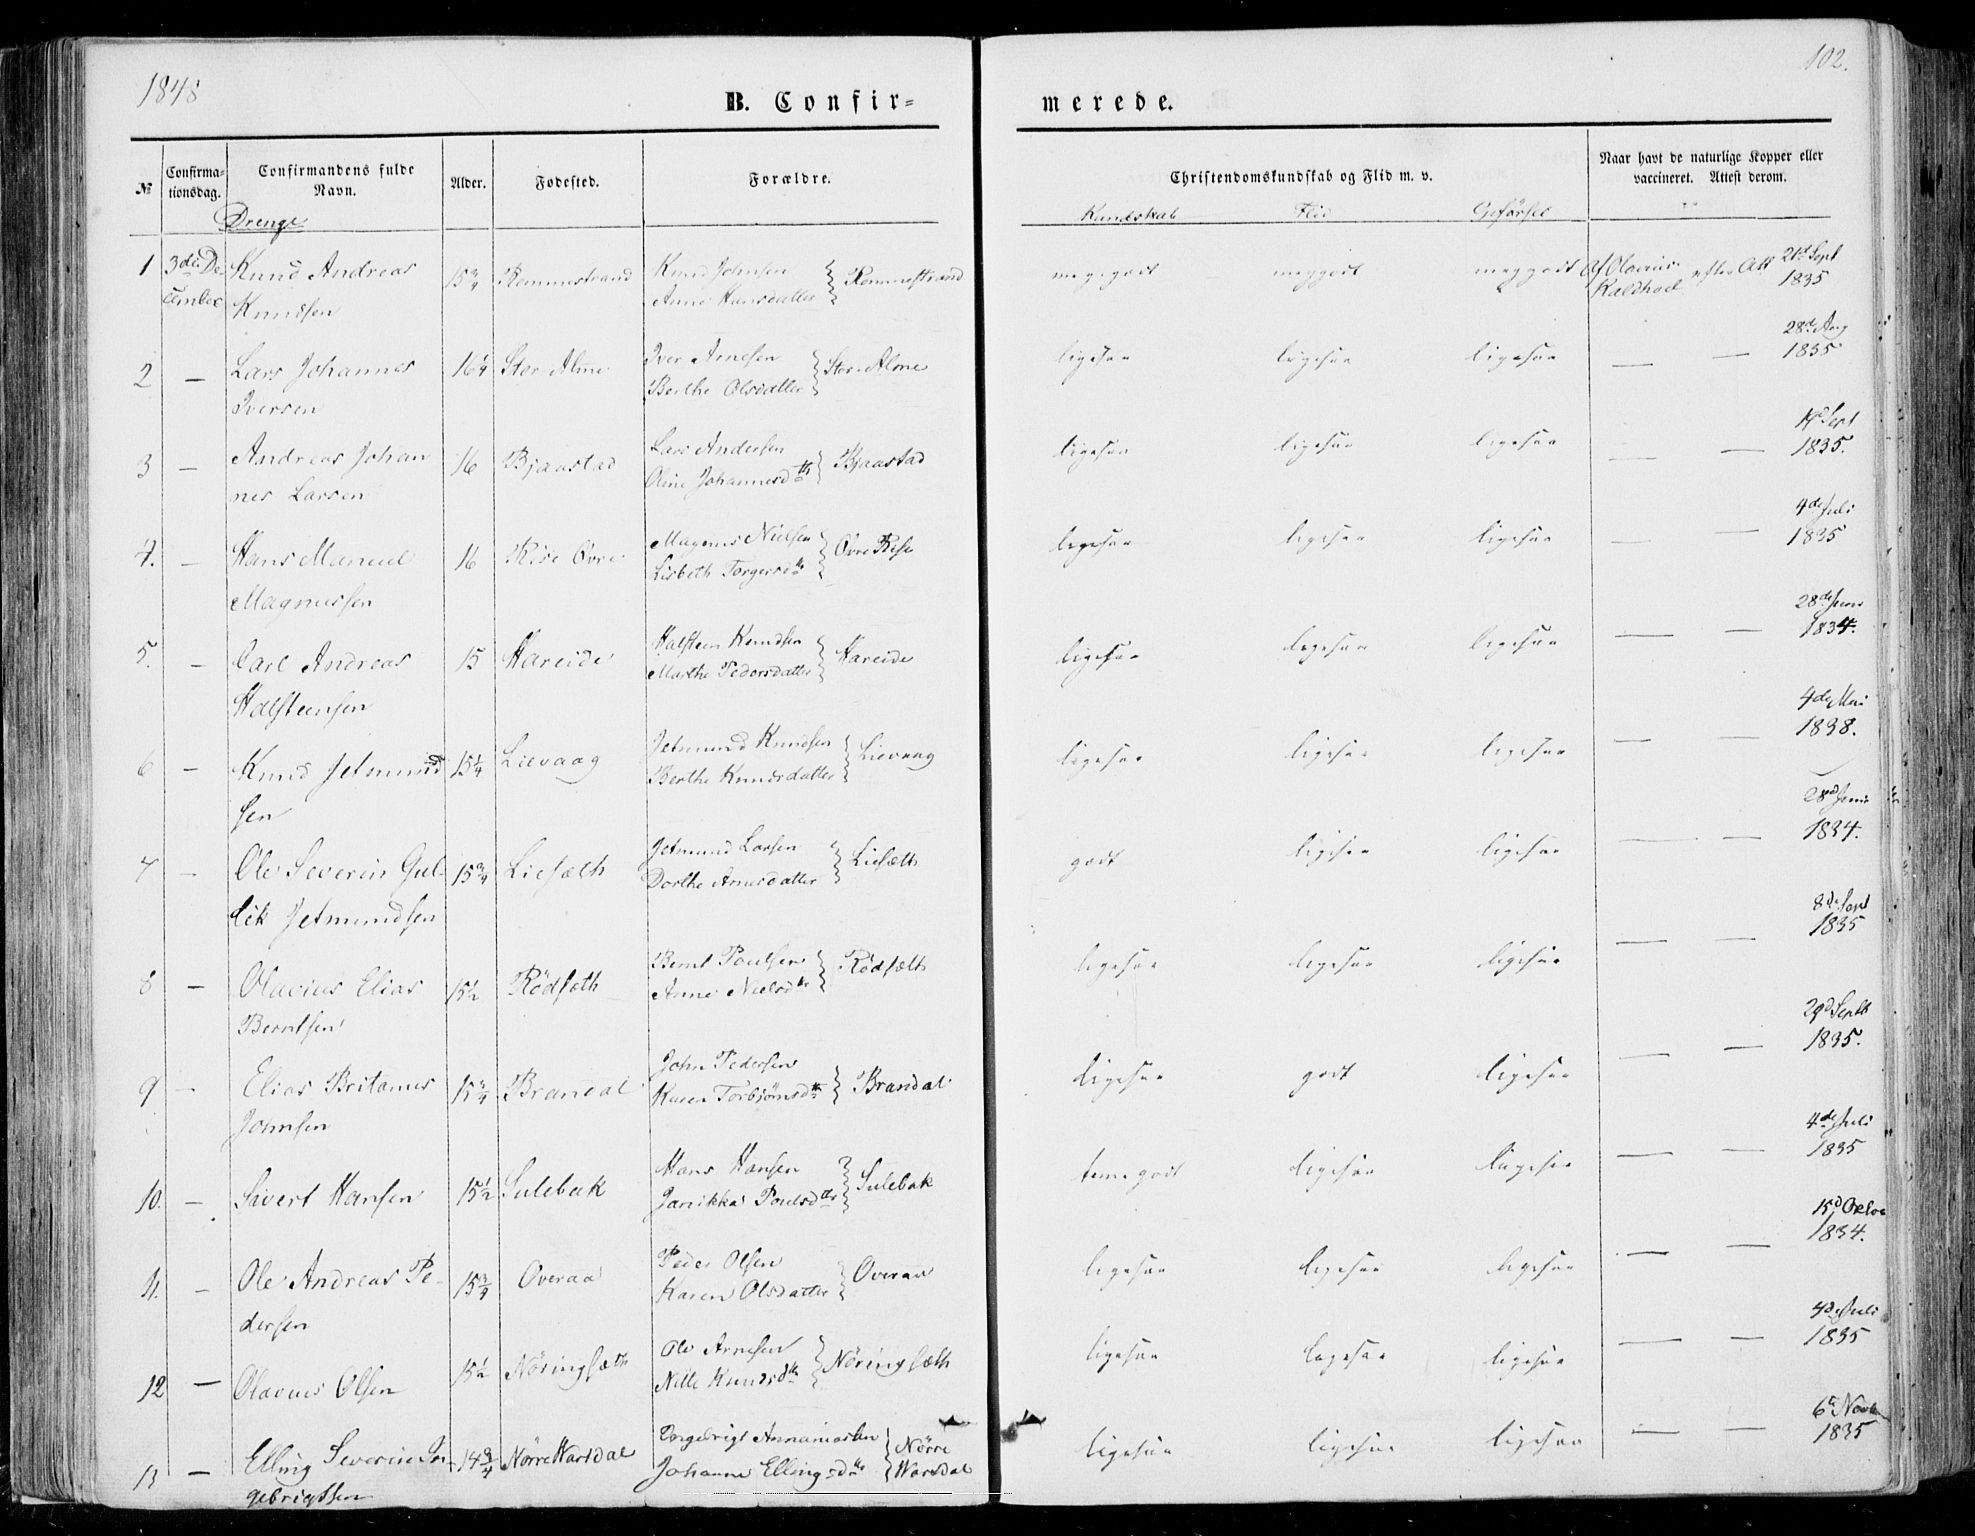 1848
102.
B. Confir-
merede.
№
Confirma-
tionsdag.
Confirmandens fulde
Navn.
Alder.
Fødested.
Forældre.
Christendomskundskab og Flid m. v.
Naar havt de naturlige Kopper eller
vaccineret. Attest derom.
Drenge
Kundskab Flid Opførsel
1 3die De- Knud Andreas 15 3/4 Rommestrand Knud Johnsen } Rommestrand meg. godt meg godt meg godt Af Olavius efter Att 21d Sept
cember Knudsen Anne Hansdatter Kaldhoel 1835
28de Aug
2 — Lars Johannes 16 1/4 Stor Alme Iver Arnesen } Stor Alme ligesaa ligesaa ligesaa — — 1835
Iversen Berthe Olsdatter
3 — Andreas Johan 16 Bjaastad Lars Andersen } Bjaastad ligesaa ligesaa ligesaa — — Sept
nes Larsen Oline Johannesdtr 1835.
4de Juli
4. — Hans Manuel 16 Rise Övre Magnus Nielsen } Övre Rise ligesaa ligesaa ligesaa — — 1835
Magnussen Lisbeth Torgersdtr
28de Juni
5. — Carl Andreas 15 Hareide Halsteen Knudsen } Hareide ligesaa ligesaa ligesaa — — 1834.
Halsteensen Marthe Pedersdatter
4de Mai
6 — Knud Jetmund 15 1/4 Lievaag Jetmund Knudsen } Lievaag ligesaa ligesaa ligesaa — — 1838.
sen Berthe Knudsdatter
28d Juni
7 — Ole Severin Gul- 15 3/4 Liesæth Jetmund Larsen } Liesæth godt ligesaa ligesaa — — 1834.
lik Jetmundsen Dorthe Arnesdatter
8de Sept
8 — Olavius Elias 15 1/2 Rödsæth Bernt Poulsen } Rödsæth ligesaa ligesaa ligesaa — — 1835
Berntsen Anne Nielsdtr
29d Septb
9 — Elias Britanus 15 3/4 Brandal John Pedersen } Brandal ligesaa godt ligesaa — — 1835.
Johnsen Karen Torbjörnsdtr
4de Juli
10. — Sivert Hansen 15 1/2 Sulebak Hans Hansen } Sulebak temmegodt ligesaa ligesaa — — 1835
Jarikka Poulsdtr
15d Octob
11. — Ole Andreas Pe- 15 3/4 Overaa Peder Olsen } Overaa ligesaa ligesaa ligesaa — — 1834.
dersen Karen Olsdatter
4de Juli
12 — Olavus Olsen 15 1/2 Nöringsæth Ole Arnesen } Nöringsæth ligesaa ligesaa ligesaa — — 1835
Nille Knudsdtr
6d Novb
13 — Elling Severin In- 14 3/4 Nörre Warsdal Ingebrigt Annaniassen } Nörre ligesaa ligesaa ligesaa — — 1835
gebrigtsen Johanne Ellingsdtr Warsdal